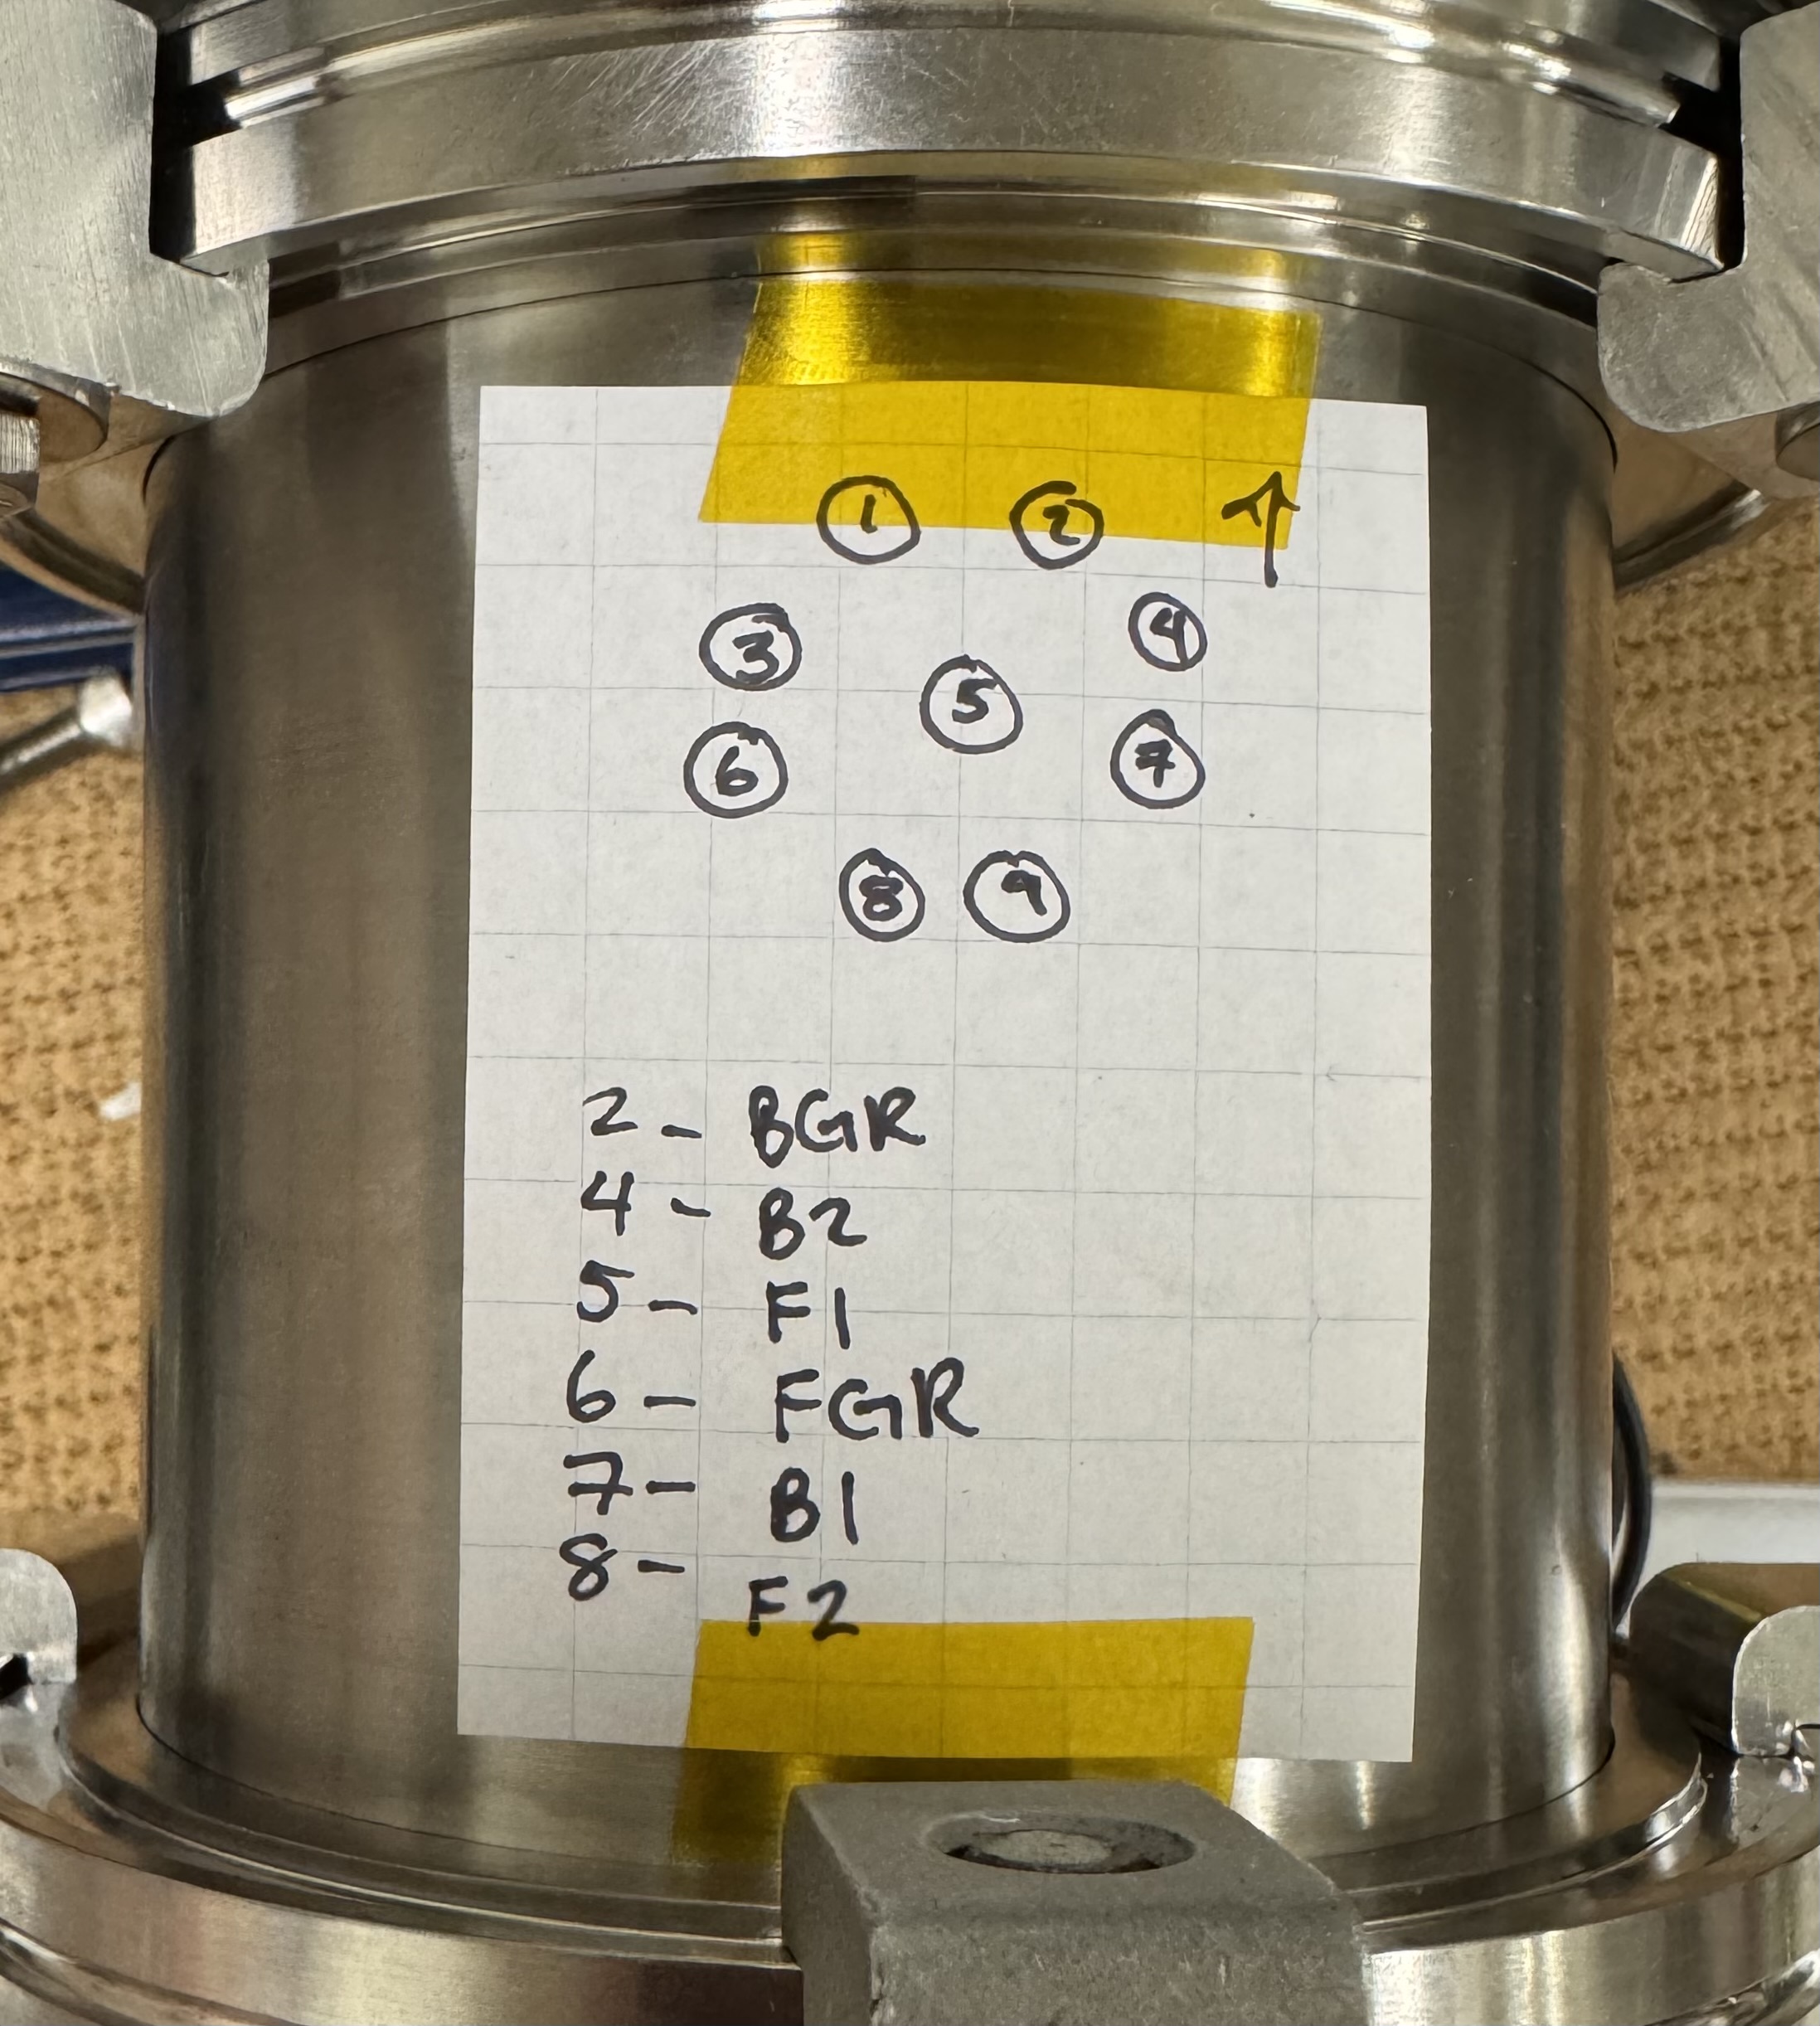 1 2 ↑
3 4
5
6 7
8 9
2 - BGR
4 - B2
5 - F1
6 - FGR
7 - B1
8 - F2